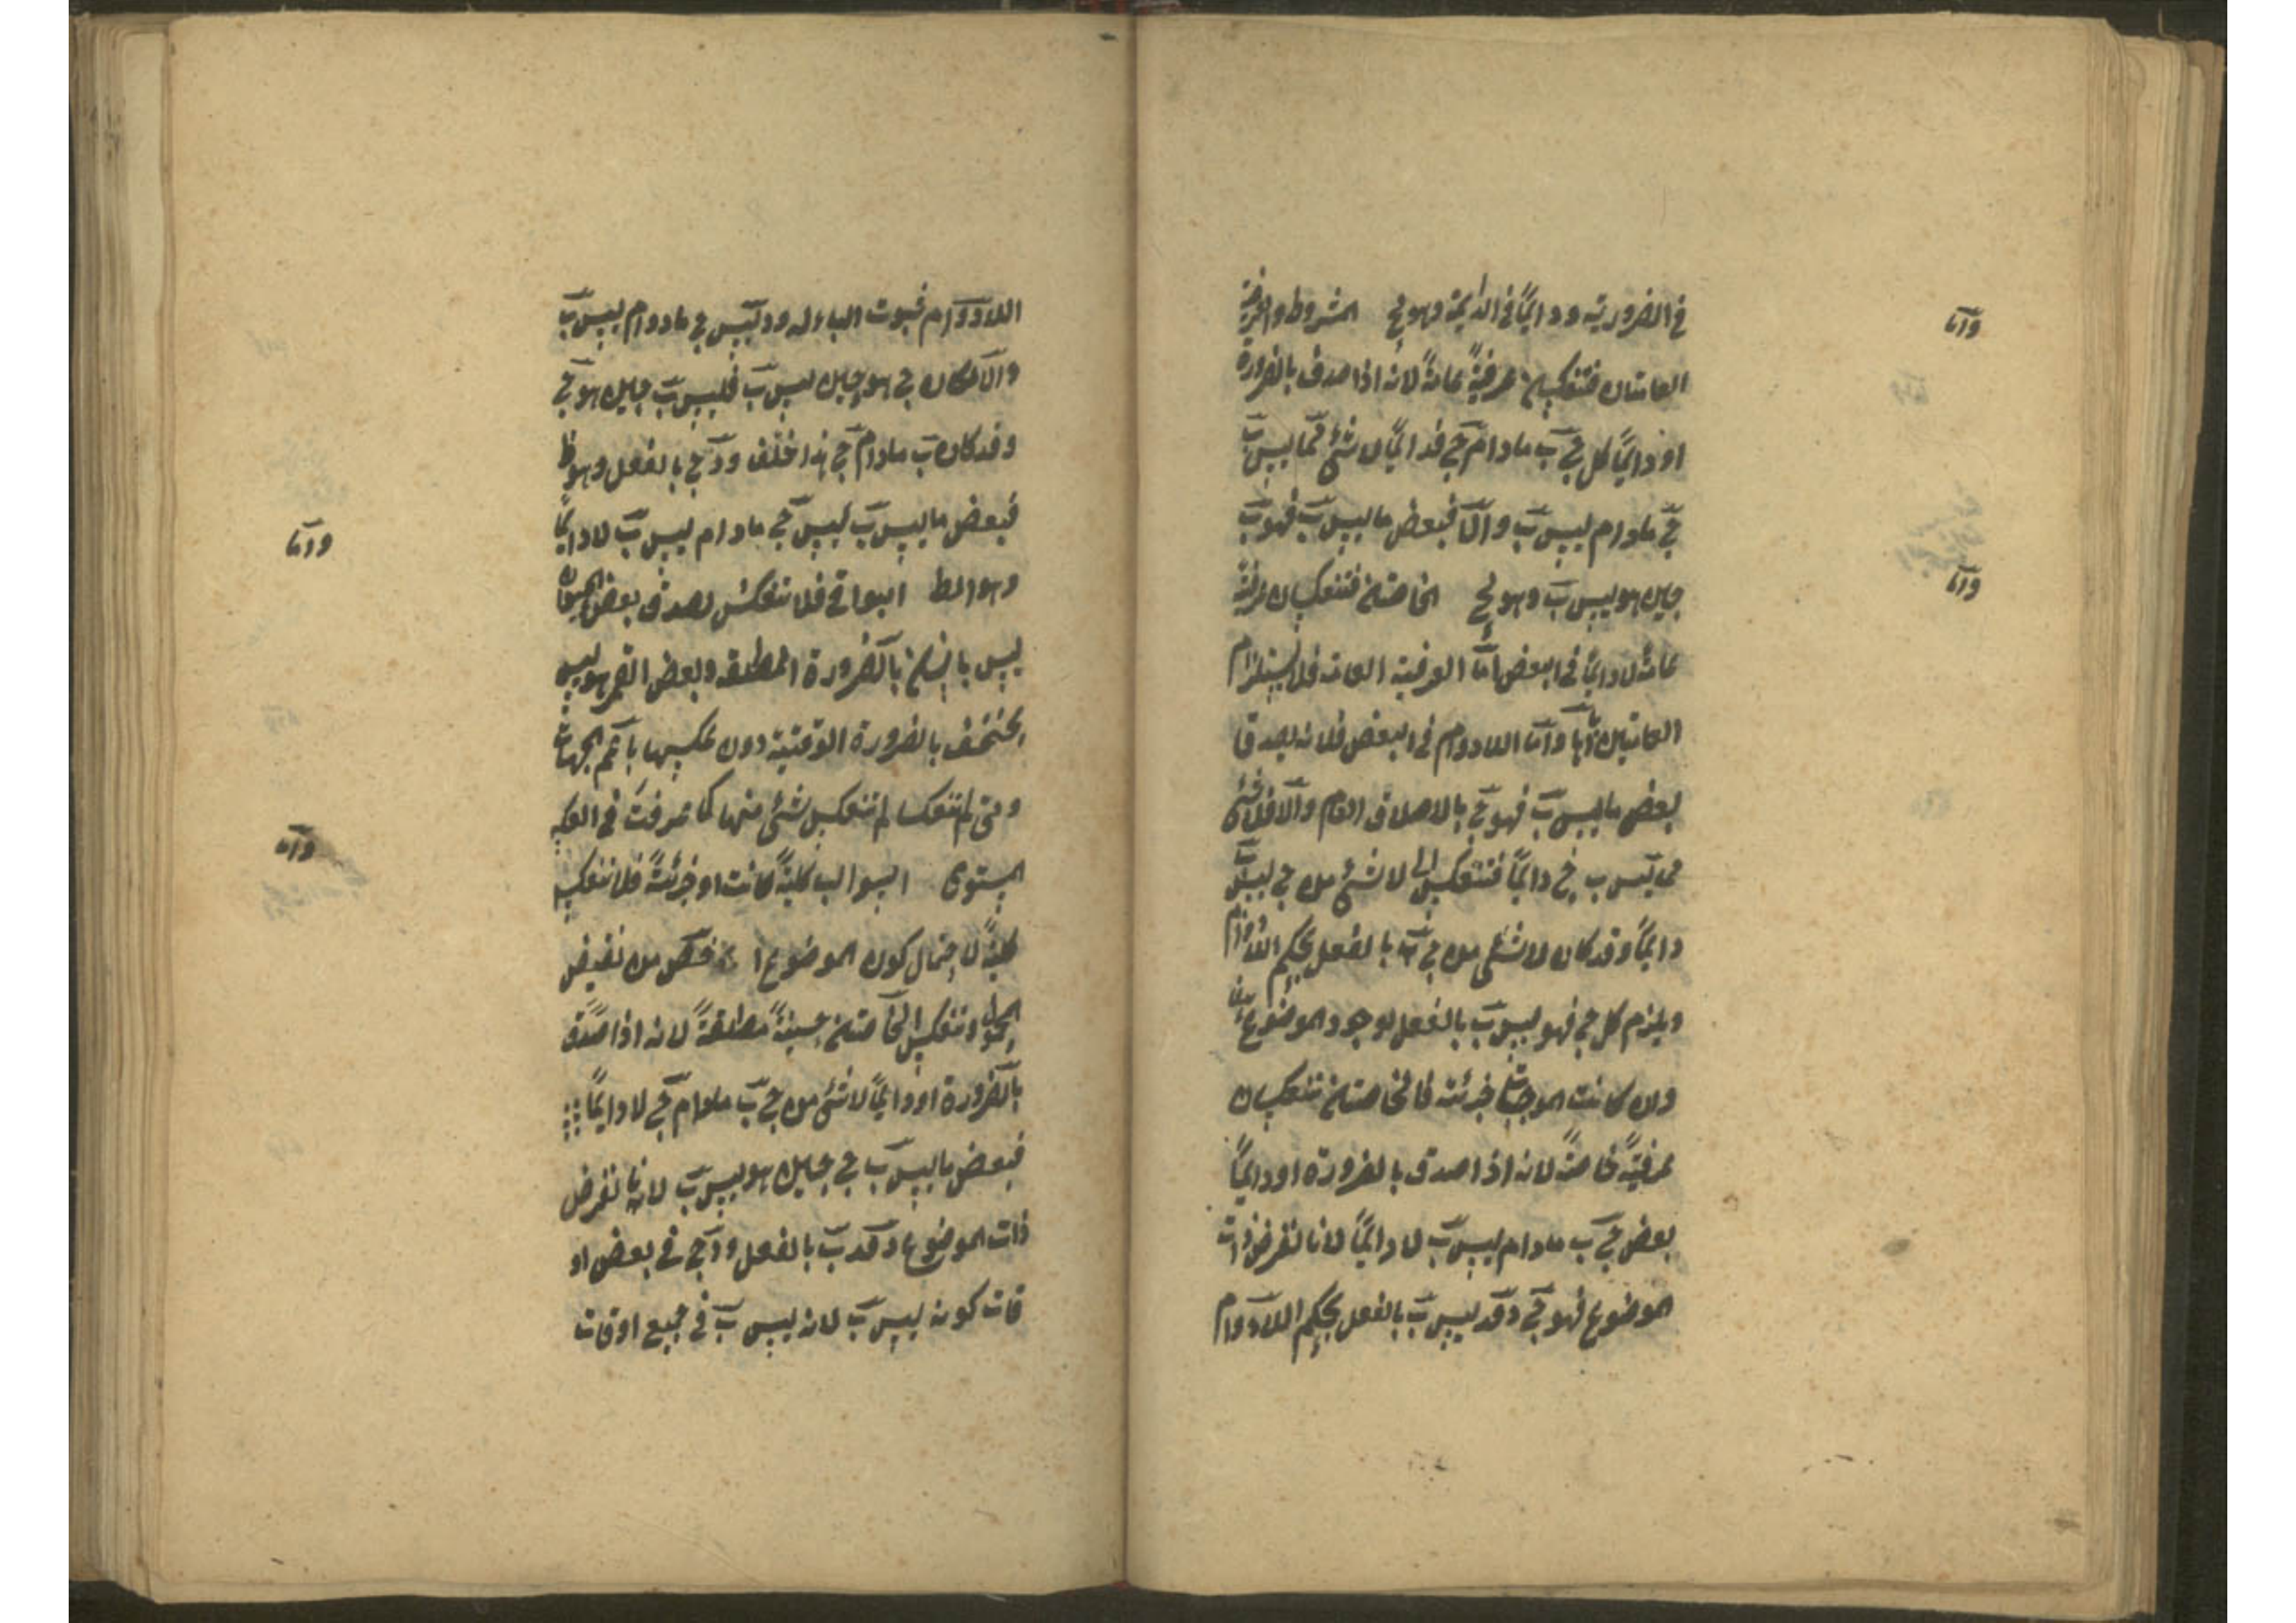 في الضرورية ودائما في الدائمة وهو مح المشروطة والعرفية
وأما
العامتان فتنعكس عرفيةً عامةً لانه اذا صدق بالضرورة
او دائماً كل ج ب مادام ج فدائماً لا شئ مما ليس ب
ج مادام ليس ب والّا فبعض ما ليس ب فهو ج
حين هو ليس ب وهو مح الخاصتان فتنعكسان عرفيةً
وأما
عامة لا دائماً في البعض أما العرفية العامة فلاستلزام
العامتين اياها وأما اللادوام في البعض فلانه يصدق
بعض ما ليس ب فهو ج بالاطلاق العام والا فلا شئ
مما ليس ب ج دائماً فتنعكس الى لا شئ من ج ليس ب
دائماً وقد كان لا شئ من ج ب بالفعل بحكم اللادوام
ويلزم كل ج فهو ليس ب بالفعل لوجود الموضوع
وان كانت الموجبة جزئية فالخاصتان تنعكسان
عرفيةً خاصةً لانه اذا صدق بالضرورة او دائماً
بعض ج ب مادام ليس ب لا دائماً لانا نفرض ذات
الموضوع فهو ج د فد ليس ب بالفعل بحكم اللادوام
اللادوام ثبوت الباء له ود ليس ج مادوام ليس ب
والا لكان ج هو حين ليس ب فليس ب حين هو ج
وقد كان ب مادام ج هذا خلف ود ج بالفعل وهو ظ
فبعض ما ليس ب ليس ج مادام ليس ب لا دائماً
وأما
وهو المط البواقي فلا تنعكس لصدق بعض الحيوان
ليس بانسان بالضرورة المطلقة وبعض القمر هو ليس
بمنخسف بالضرورة الوقتية دون عكسها باعم الجهات
ومتى لم تنعكسا لم تنعكس شئ منها كما عرفت في العكس
المستوى السوالب كليةً كانت او جزئيةً فلا تنعكس
وأما
كليةً لاحتمال كون الموضوع اخص من نقيض
المحمول وتنعكس الخاصتان حينيةً مطلقةً لانه اذا صدق
بالضرورة او دائماً لا شئ من ج ب مادام ج لا دائماً
فبعض ما ليس ب ج حين هو ليس ب لانا نفرض
ذات الموضوع د فد ب بالفعل ود ج في بعض او
قات كونه ليس ب لانه ليس ب في جميع اوقات